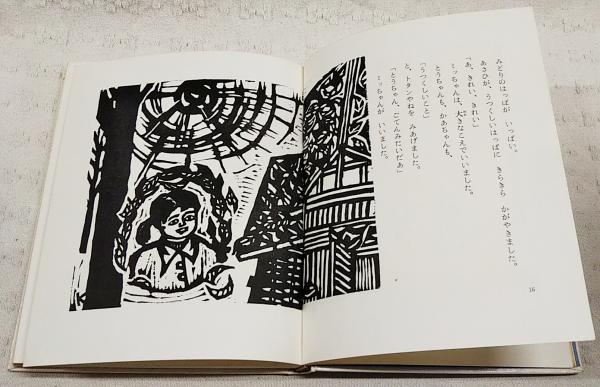 みどりのはっぱが いっぱい。
あさひが、うつくしいはっぱに きらきら かがやきました。
「あ、きれい、きれい」
ミッちゃんは、大きなこえでいいました。
とうちゃんも、かあちゃんも、
「うつくしいこと」
と、トタンやねを みあげました。
「とうちゃん、ごてんみたいだあ」
ミッちゃんが いいました。
16